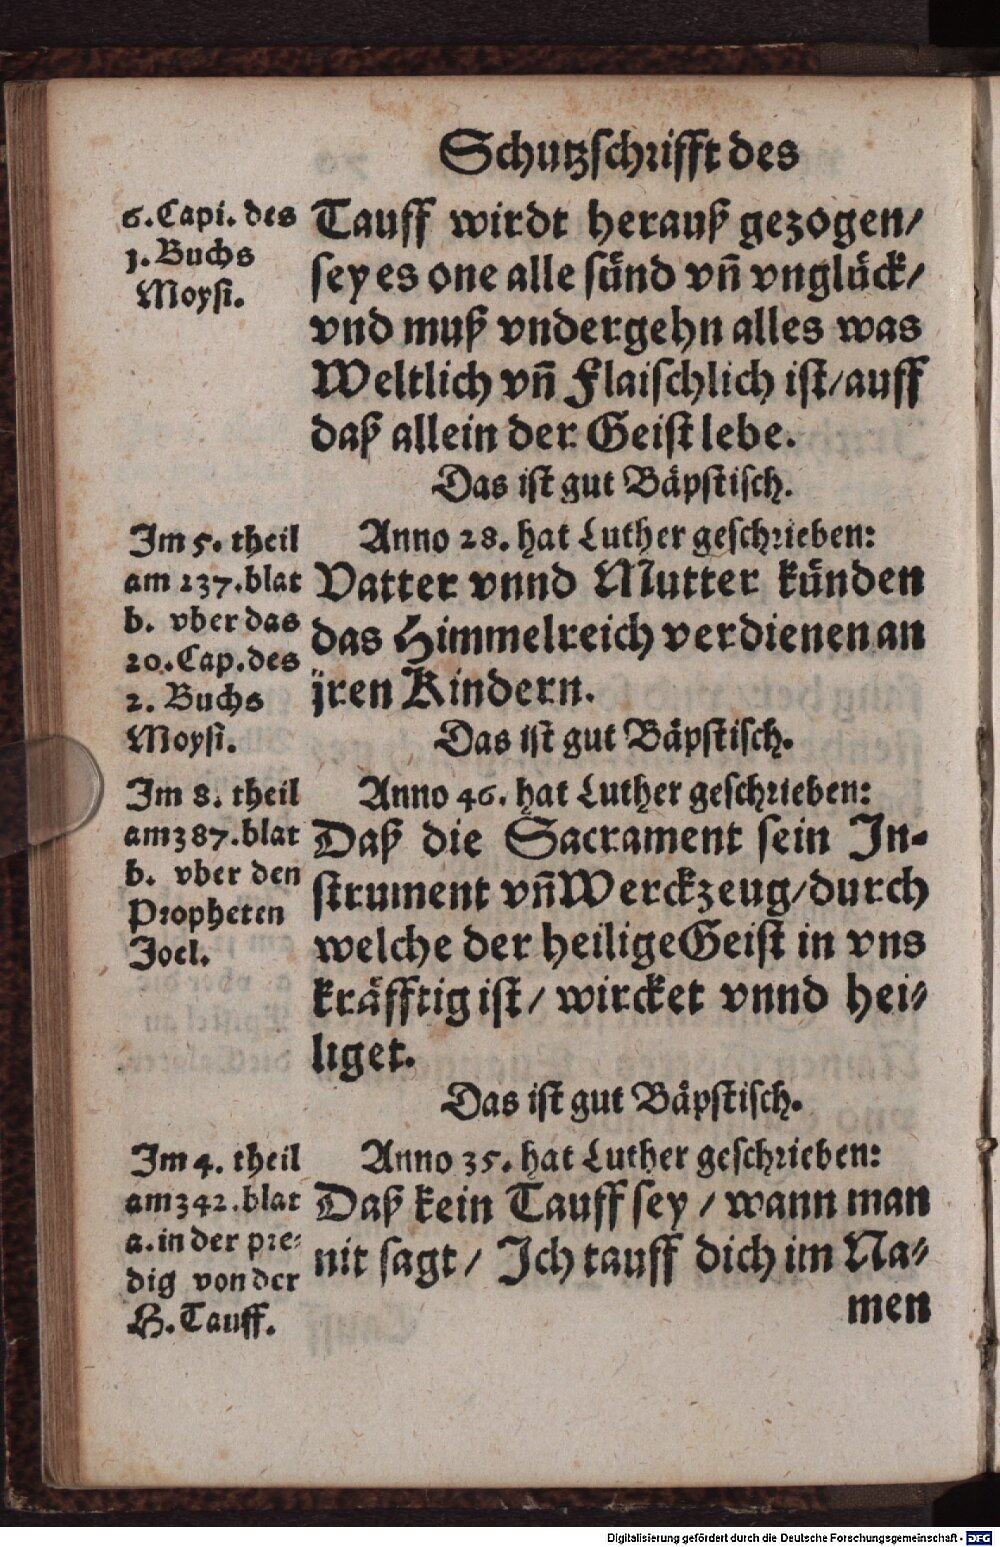 Schutzschrifft des
6. Capi. des
1. Buchs
Moysi.
Tauff wirdt herauß gezogen/
sey es one alle sünd vñ vnglück/
vnd muß vndergehn alles was
Weltlich vñ Flaischlich ist/ auff
daß allein der Geist lebe.
Das ist gut Bäpstisch.
Im 5. theil
am 237. blat
b. vber das
20. Cap. des
2. Buchs
Moysi.
Anno 28. hat Luther geschrieben:
Vatter vnnd Mutter künden
das Himmelreich verdienen an
jren Kindern.
Das ist gut Bäpstisch.
Im 8. theil
am 387. blat
b. vber den
Propheten
Joel.
Anno 46. hat Luther geschrieben:
Daß die Sacrament sein In-
strument vñ Werckzeug/ durch
welche der heilige Geist in vns
kräfftig ist/ wircket vnnd hei-
liget.
Das ist gut Bäpstisch.
Im 4. theil
am 342. blat
a. in der pre-
dig von der
H. Tauff.
Anno 35. hat Luther geschrieben:
Daß kein Tauff sey/ wann man
nit sagt/ Ich tauff dich im Na-
men
Digitalisierung gefördert durch die Deutsche Forschungsgemeinschaft - DFG